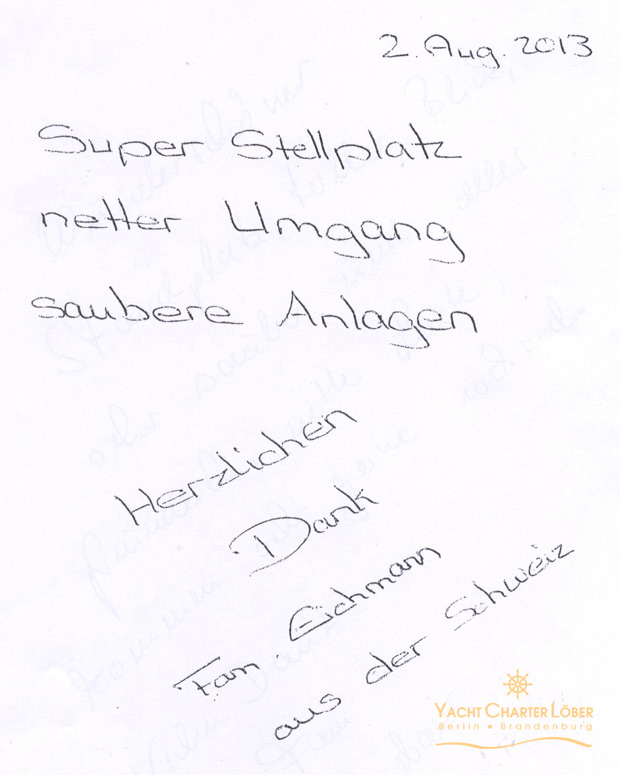 2. Aug. 2013
Super Stellplatz
netter Umgang
saubere Anlagen
Herzlichen
Dank
Fam. Eichmann
aus der Schweiz
YACHT CHARTER LÖBER
Berlin • Brandenburg